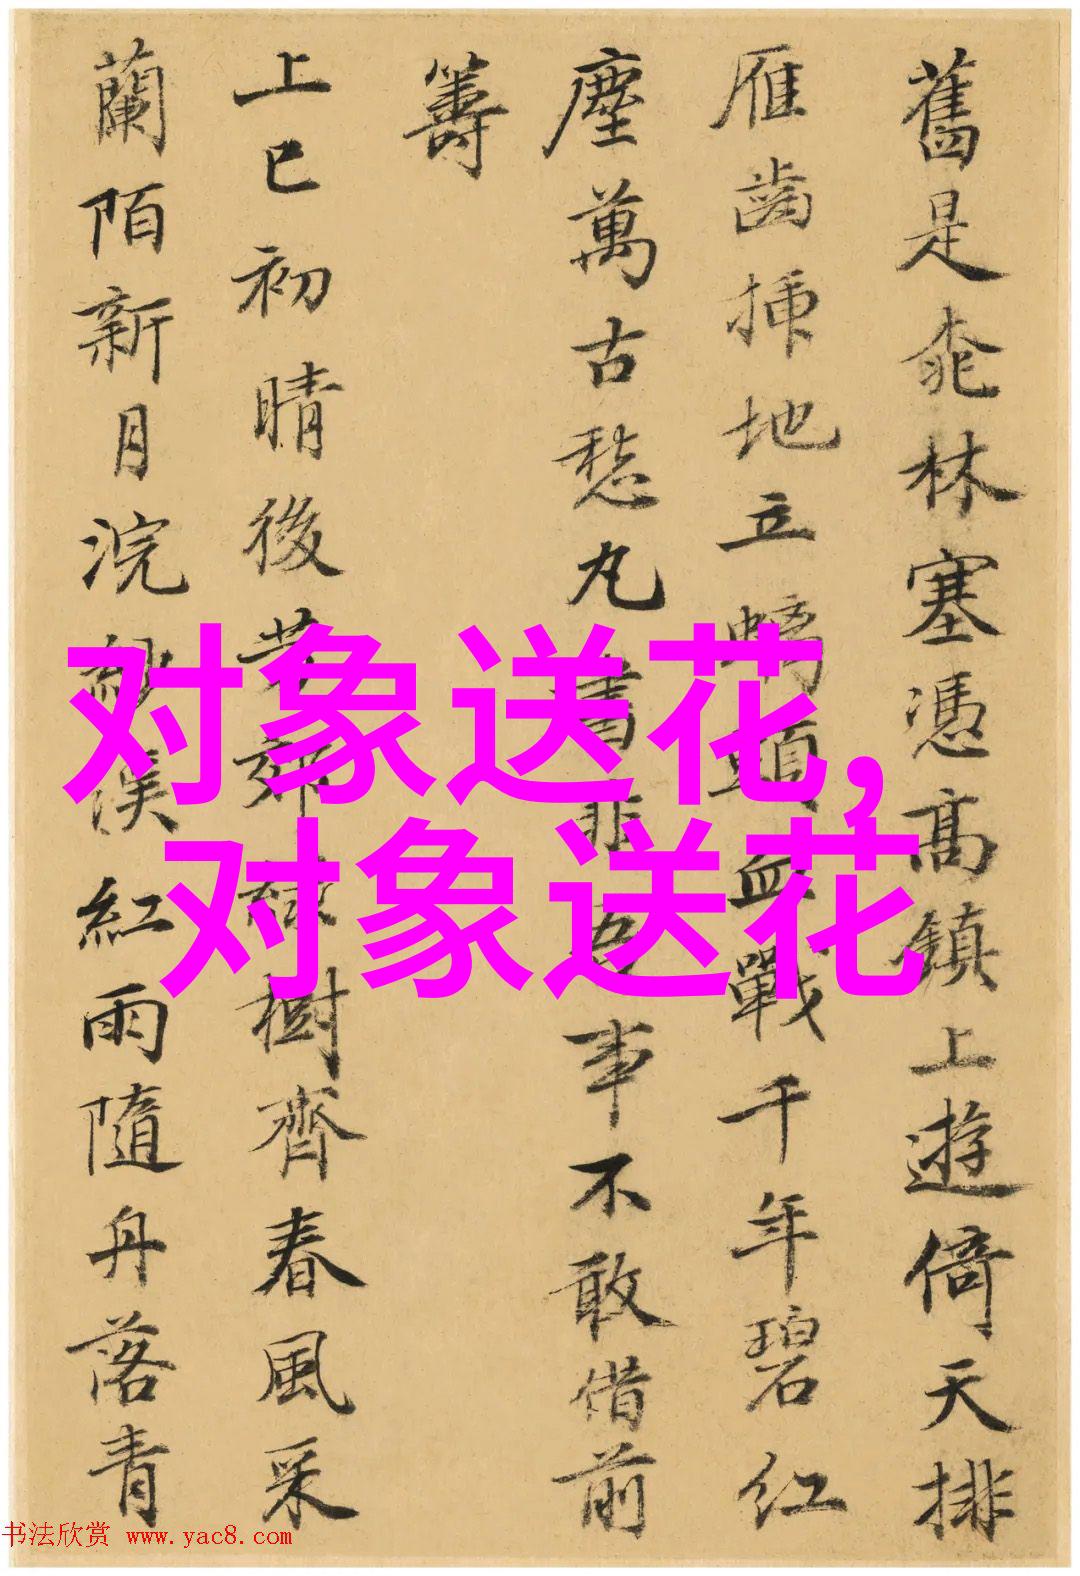 舊是桃林塞憑高鎮上遊倚天排
雁齒插地立螭頭血戰千年碧紅
塵萬古愁丸書非吾事不敢借前
籌
上巳初晴後芳郊綠樹齊春風采
蘭陌新月浣紗溪紅雨隨舟落青
对象送花,
对象送花
书法欣赏 www.yac8.com